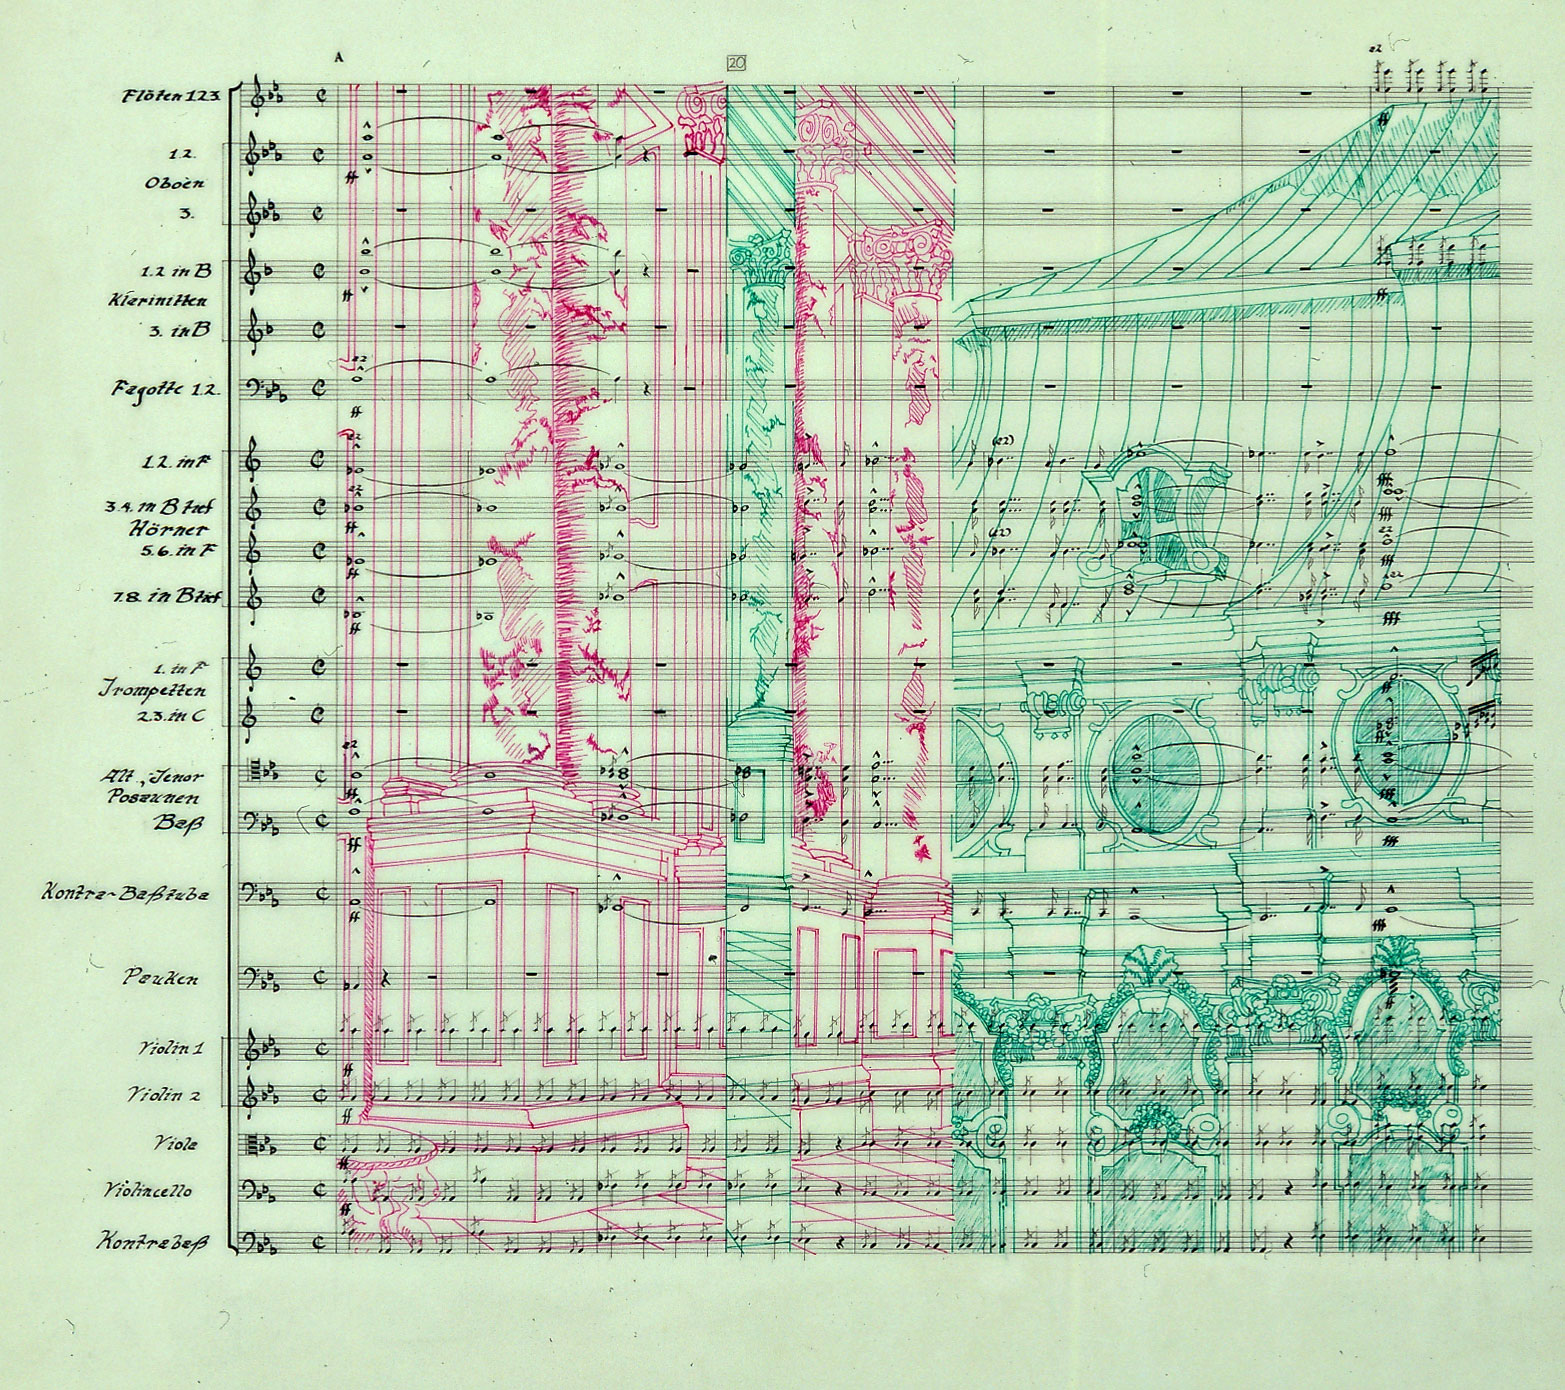 A
20
a2
Flöten 1 2 3
1. 2.
Oboen
3.
1. 2 in B
Klarinetten
3. in B
Fagotte 1. 2.
1. 2. in F
3. 4. in B tief
Hörner
5. 6. in F
7. 8. in B tief
1. in F
Trompetten
2. 3. in C
Alt, Tenor
Posaunen
Baß
Kontra-Baßtuba
Pauken
Violin 1
Violin 2
Viola
Violincello
Kontrabaß